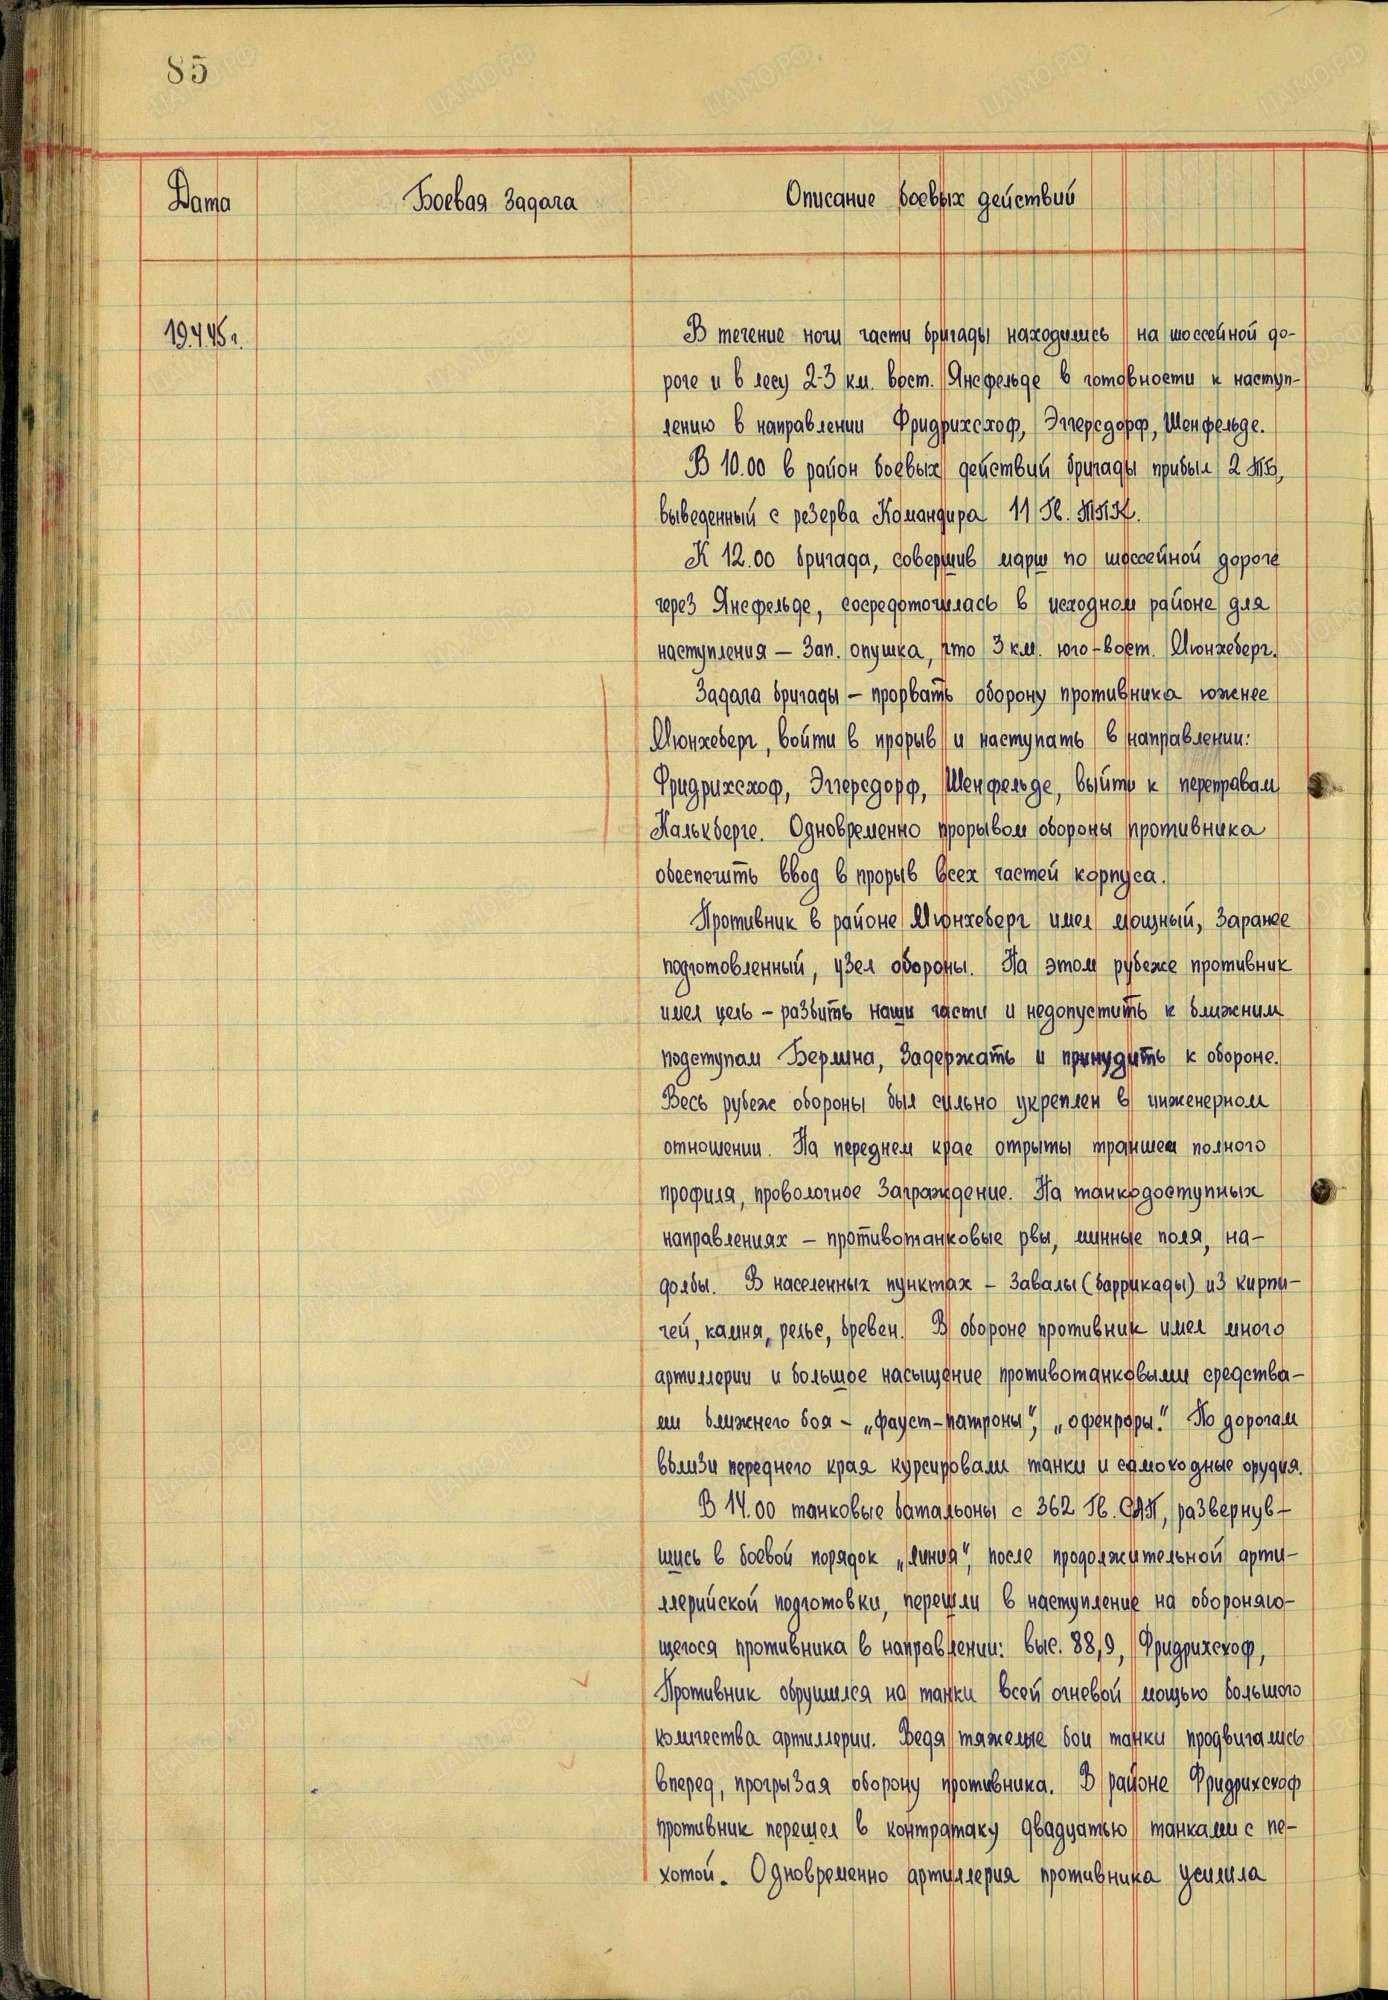 85
Дата
Боевая задача
Описание боевых действий
19.4.45 г.
В течение ночи части бригады находились на шоссейной до-
роге и в лесу 2-3 км. вост. Янсфельде в готовности к наступ-
лению в направлении Фридрихсхоф, Эггерсдорф, Шенфельде.
В 10.00 в район боевых действий бригады прибыл 2 ТБ,
выведенный с резерва Командира 11 Гв. ТТК.
К 12.00 бригада, совершив марш по шоссейной дороге
через Янсфельде, сосредоточилась в исходном районе для
наступления – зап. опушка, что 3 км. юго-вост. Мюнхеберг.
Задача бригады – прорвать оборону противника южнее
Мюнхеберг, войти в прорыв и наступать в направлении:
Фридрихсхоф, Эггерсдорф, Шенфельде, выйти к переправам
Калькберге. Одновременно прорывом обороны противника
обеспечить ввод в прорыв всех частей корпуса.
Противник в районе Мюнхеберг имел мощный, заранее
подготовленный, узел обороны. На этом рубеже противник
имел цель – разбить наши части и недопустить к ближним
подступам Берлина, задержать и принудить к обороне.
Весь рубеж обороны был сильно укреплен в инженерном
отношении. На переднем крае отрыты траншеи полного
профиля, проволочное заграждение. На танкодоступных
направлениях – противотанковые рвы, минные поля, на-
долбы. В населенных пунктах – завалы (баррикады) из кирпи-
чей, камня, рельс, бревен. В обороне противник имел много
артиллерии и большое насыщение противотанковыми средства-
ми ближнего боя – „фауст-патроны“, „офенроры“. По дорогам
вблизи переднего края курсировали танки и самоходные орудия.
В 14.00 танковые батальоны с 362 Гв. САП, развернув-
шись в боевой порядок „линия“, после продолжительной арти-
ллерийской подготовки, перешли в наступление на обороняю-
щегося противника в направлении: выс. 88,9, Фридрихсхоф,
Противник обрушился на танки всей огневой мощью большого
количества артиллерии. Ведя тяжелые бои танки продвигались
вперед, прогрызая оборону противника. В районе Фридрихсхоф
противник перешел в контратаку двадцатью танками с пе-
хотой. Одновременно артиллерия противника усилила